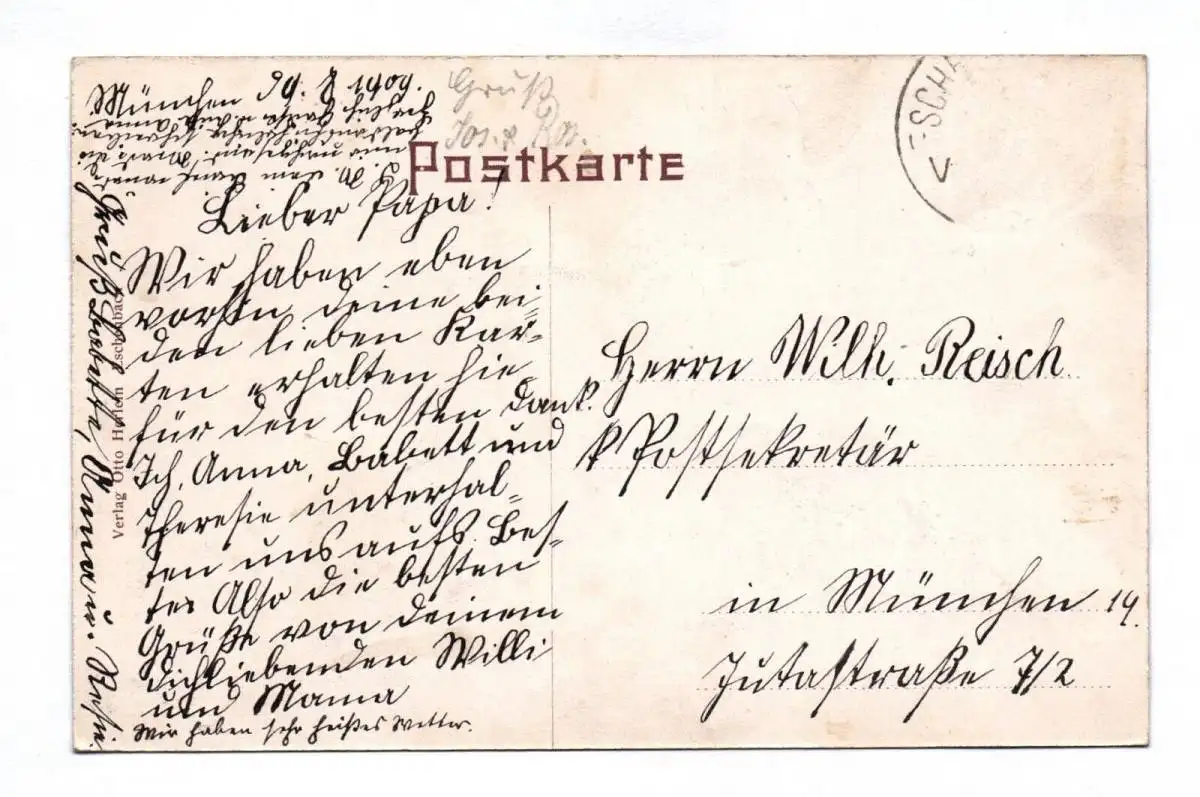 München 29. 8 1909.
Gruß
Jos. & 
Postkarte
ESCHA
Lieber Papa!
Wir haben eben
vorhin deine bei-
den lieben Kar-
ten erhalten hie-
für den besten Dank.
Ich, Anna, Babett und
Theresie unterhal-
ten uns aufs Bes-
te. Also die besten
Grüße von deinem
dichliebenden Willi
und Mama
Wir haben sehr heißes Wetter.
Gruß Babette, Anna u. Resie.
Verlag Otto Eschenbach
Herrn Wilh. Reisch
k Postsekretär
in München 19.
Jutastraße 7/2